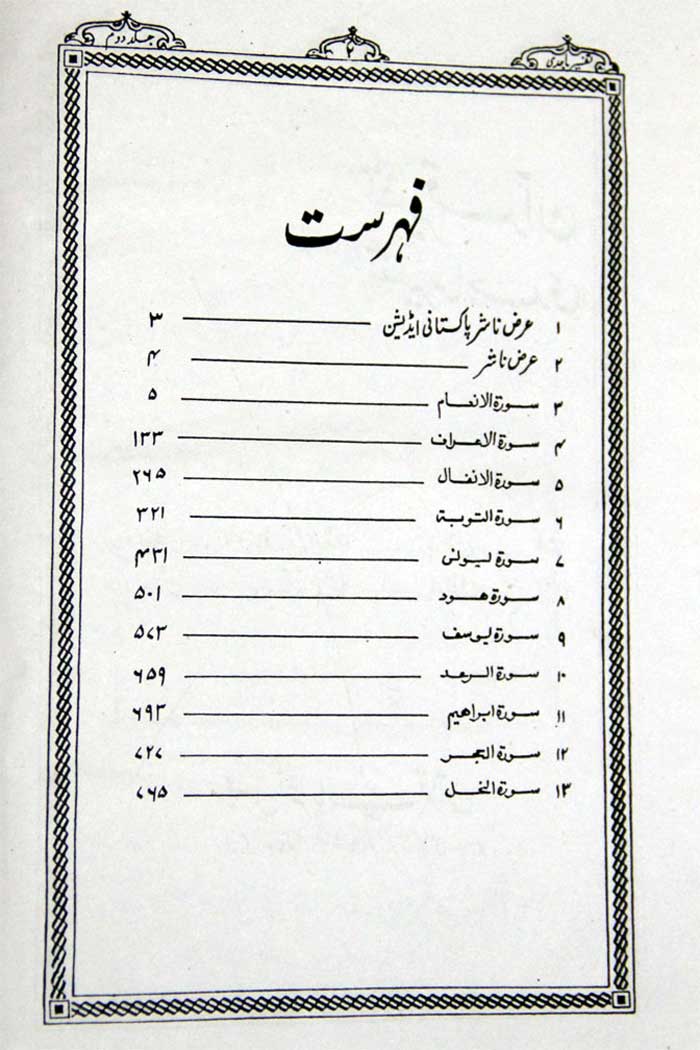 تفسیر ماجدی ۲ جلد دوم
فہرست
۱ عرض ناشر پاکستانی ایڈیشن ۳
۲ عرض ناشر ۴
۳ سورة الانعام ۵
۴ سورة الاعراف ۱۳۳
۵ سورة الانفال ۲۶۵
۶ سورة التوبة ۳۲۱
۷ سورة یونس ۴۳۱
۸ سورة ھود ۵۰۱
۹ سورة یوسف ۵۷۳
۱۰ سورة الرعد ۶۵۹
۱۱ سورة ابراھیم ۶۹۳
۱۲ سورة الحجر ۷۲۷
۱۳ سورة النحل ۷۶۵